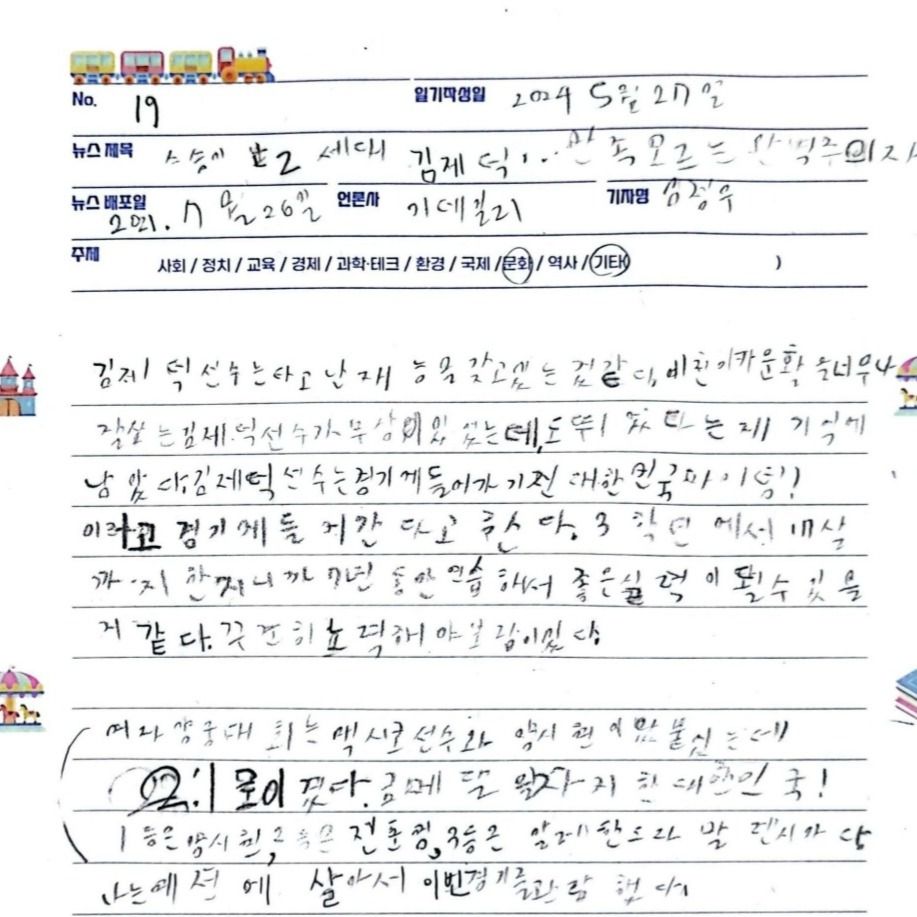 No. 19 일기작성일 2024 5월 27일
뉴스 제목 스승이 #2 세대 김제덕... 만족모르는 완벽주의자
뉴스 배포일 2021. 7 월 26일 언론사 기자명
주제 사회 / 정치 / 교육 / 경제 / 과학·테크 / 환경 / 국제 / 문화 / 역사 / 기타( )
김제덕선수는타고난재능을갖고있는것같다,
잘쏘는김제덕선수가 기억에
남았다,김제덕선수는경기게들어가기전대한민국파이팅!
이라고 경기게들어간다고 한다, 3학년에서 17살
까지 7년동안연습해서 좋은실력이될수있을
거 같다. 꾸준히 노력해야보람이있다,
여자양궁대회는 멕시코선수와 맞붙었는데
2:1 로이겼다. 금메달 차지한대한민국!
1등은 2등은 전훈영, 3등은 알레한드라 발렌시가다
나는예천에 살아서 이번경기를관람했다,